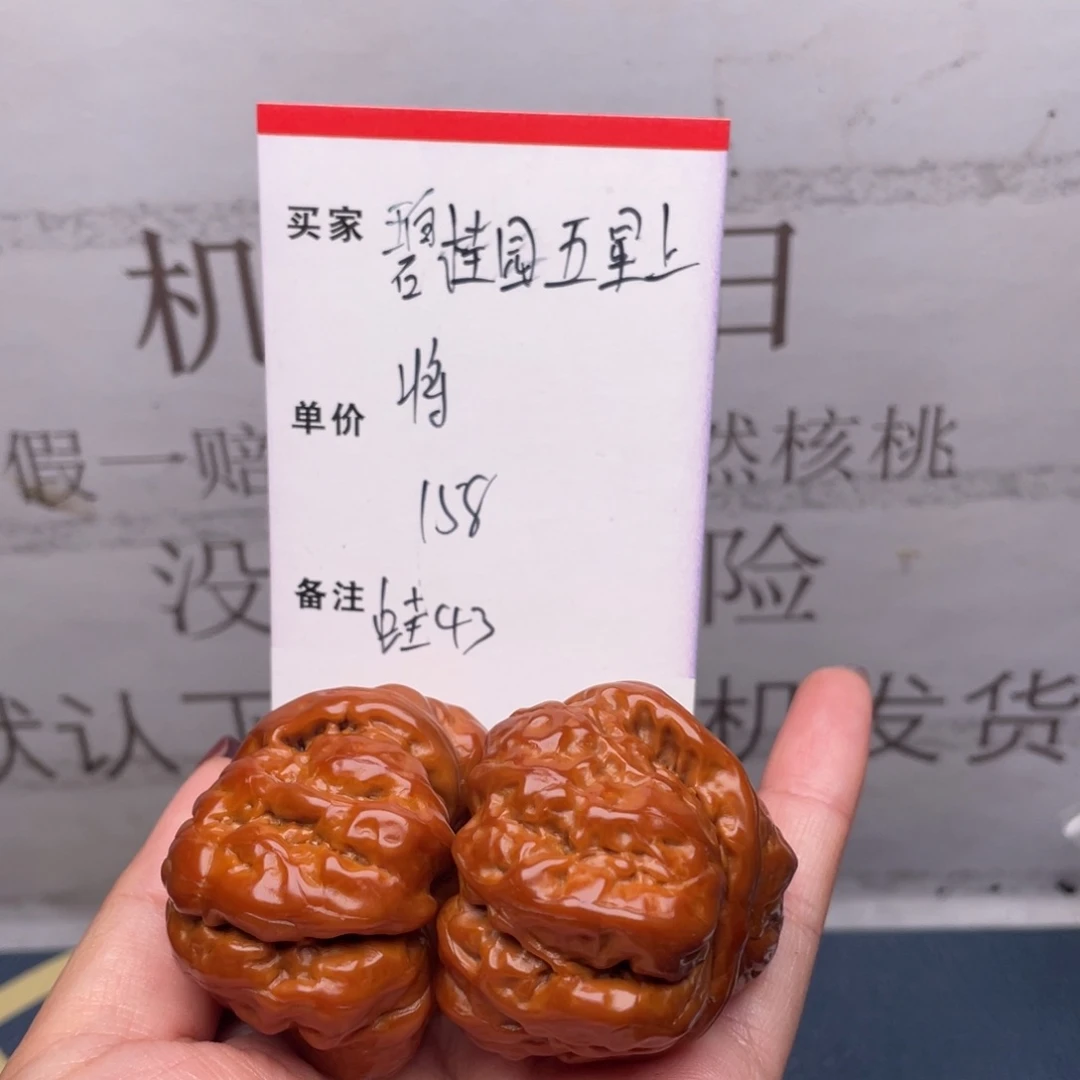 买家 碧桂园五星上
将
单价
158
备注 蛙43
机 日
假一赔 然核桃
没 险
默认下 机发货